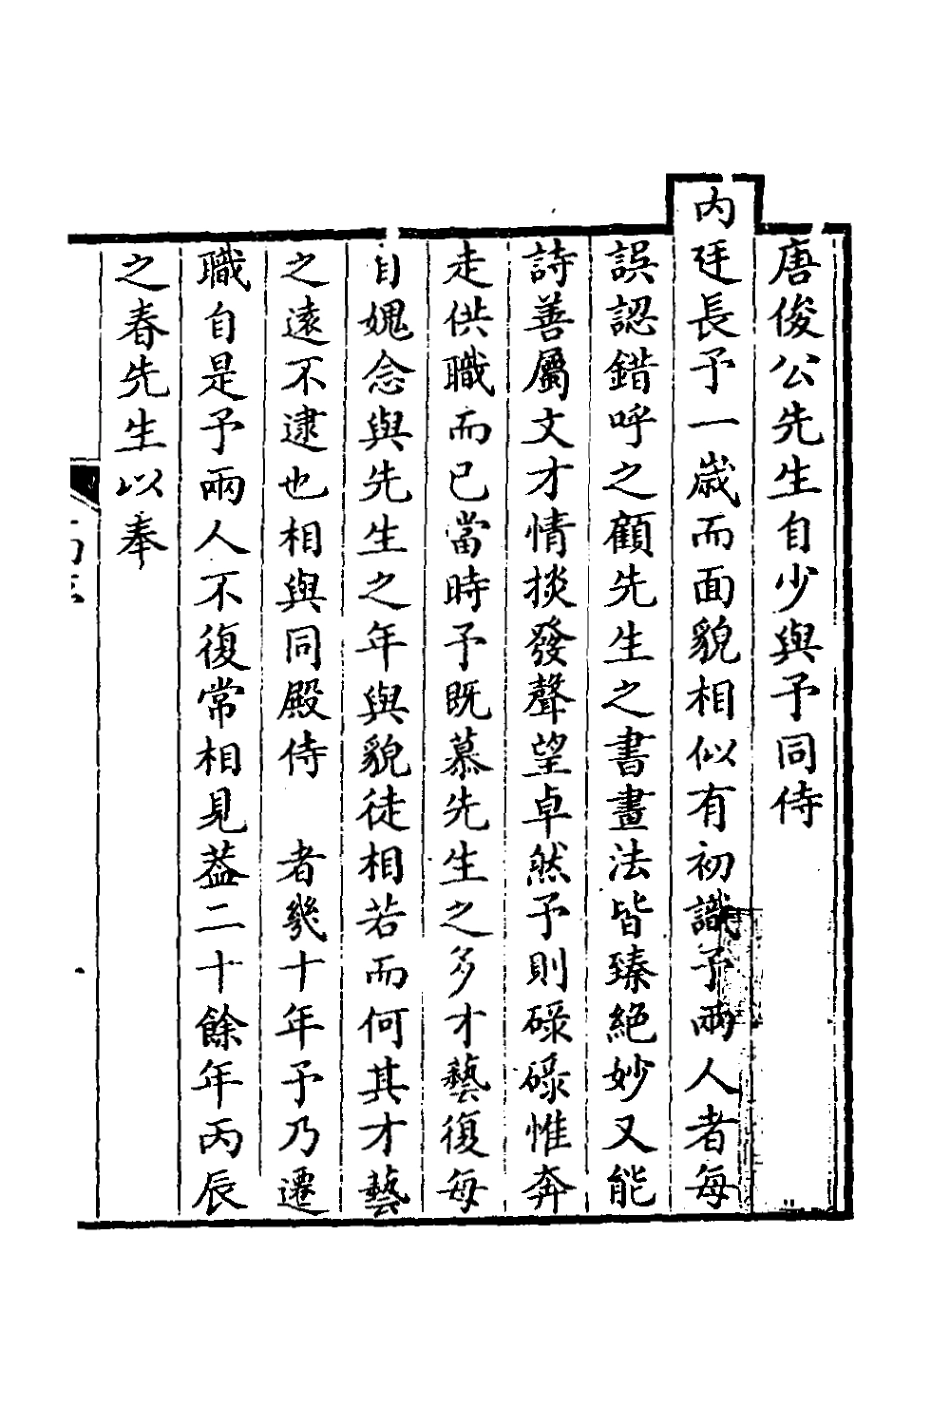 唐俊公先生自少與予同侍
内廷長予一歲而面貌相似有初識予兩人者每
誤認錯呼之顧先生之書畫法皆臻絕妙又能
詩善屬文才情掞發聲望卓然予則碌碌惟奔
走供職而已當時予既慕先生之多才藝復每
自媿念與先生之年與貌徒相若而何其才藝
之遠不逮也相與同殿侍　者幾十年予乃遷
職自是予兩人不復常相見葢二十餘年丙辰
之春先生以奉